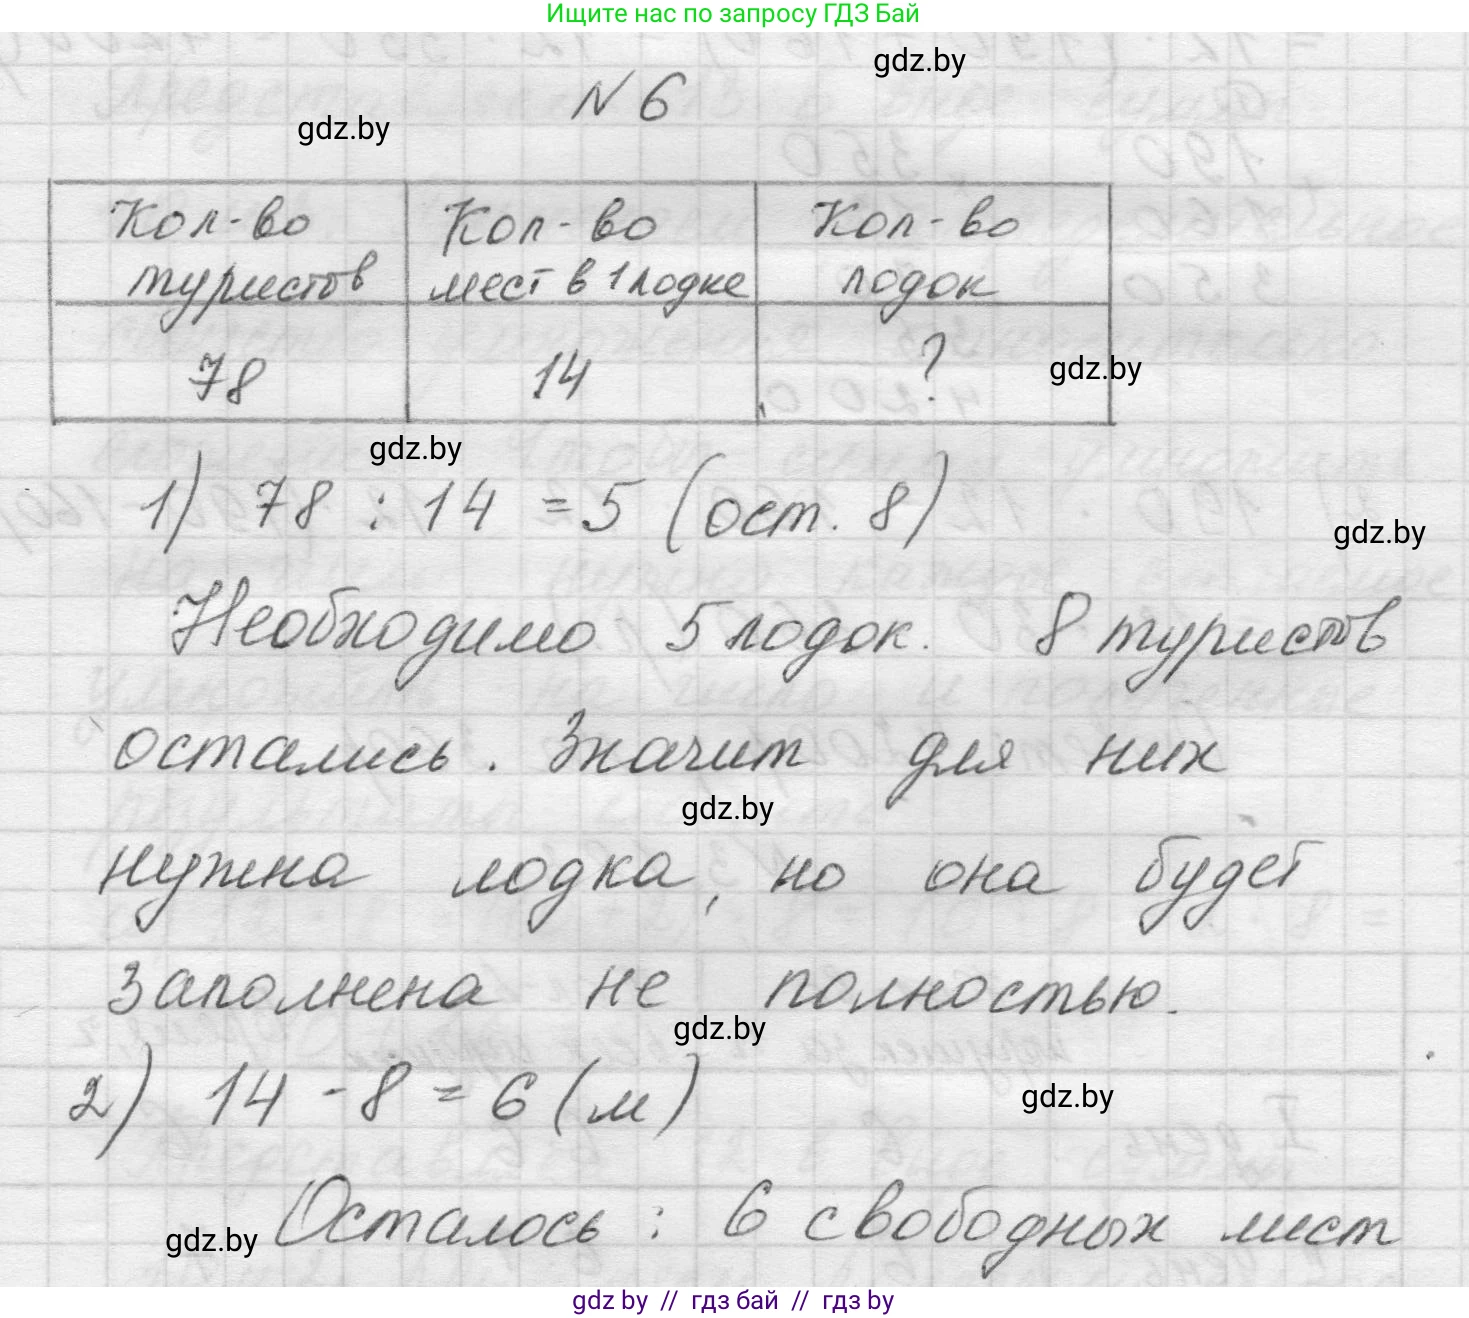 Ищите нас по запросу ГДЗ Бай
gdz.by
N 6
gdz.by
Кол-во туристов
Кол-во мест в 1 лодке
Кол-во лодок
78
14
?
gdz.by
gdz.by
1) 78 : 14 = 5 (ост. 8)
gdz.by
Необходимо 5 лодок. 8 туристов
остались. Значит для них
gdz.by
нужна лодка, но она будет
заполнена не полностью.
gdz.by
2) 14 - 8 = 6 (м)
gdz.by
Осталось : 6 свободных мест
gdz.by
gdz by // гдз бай // гдз by